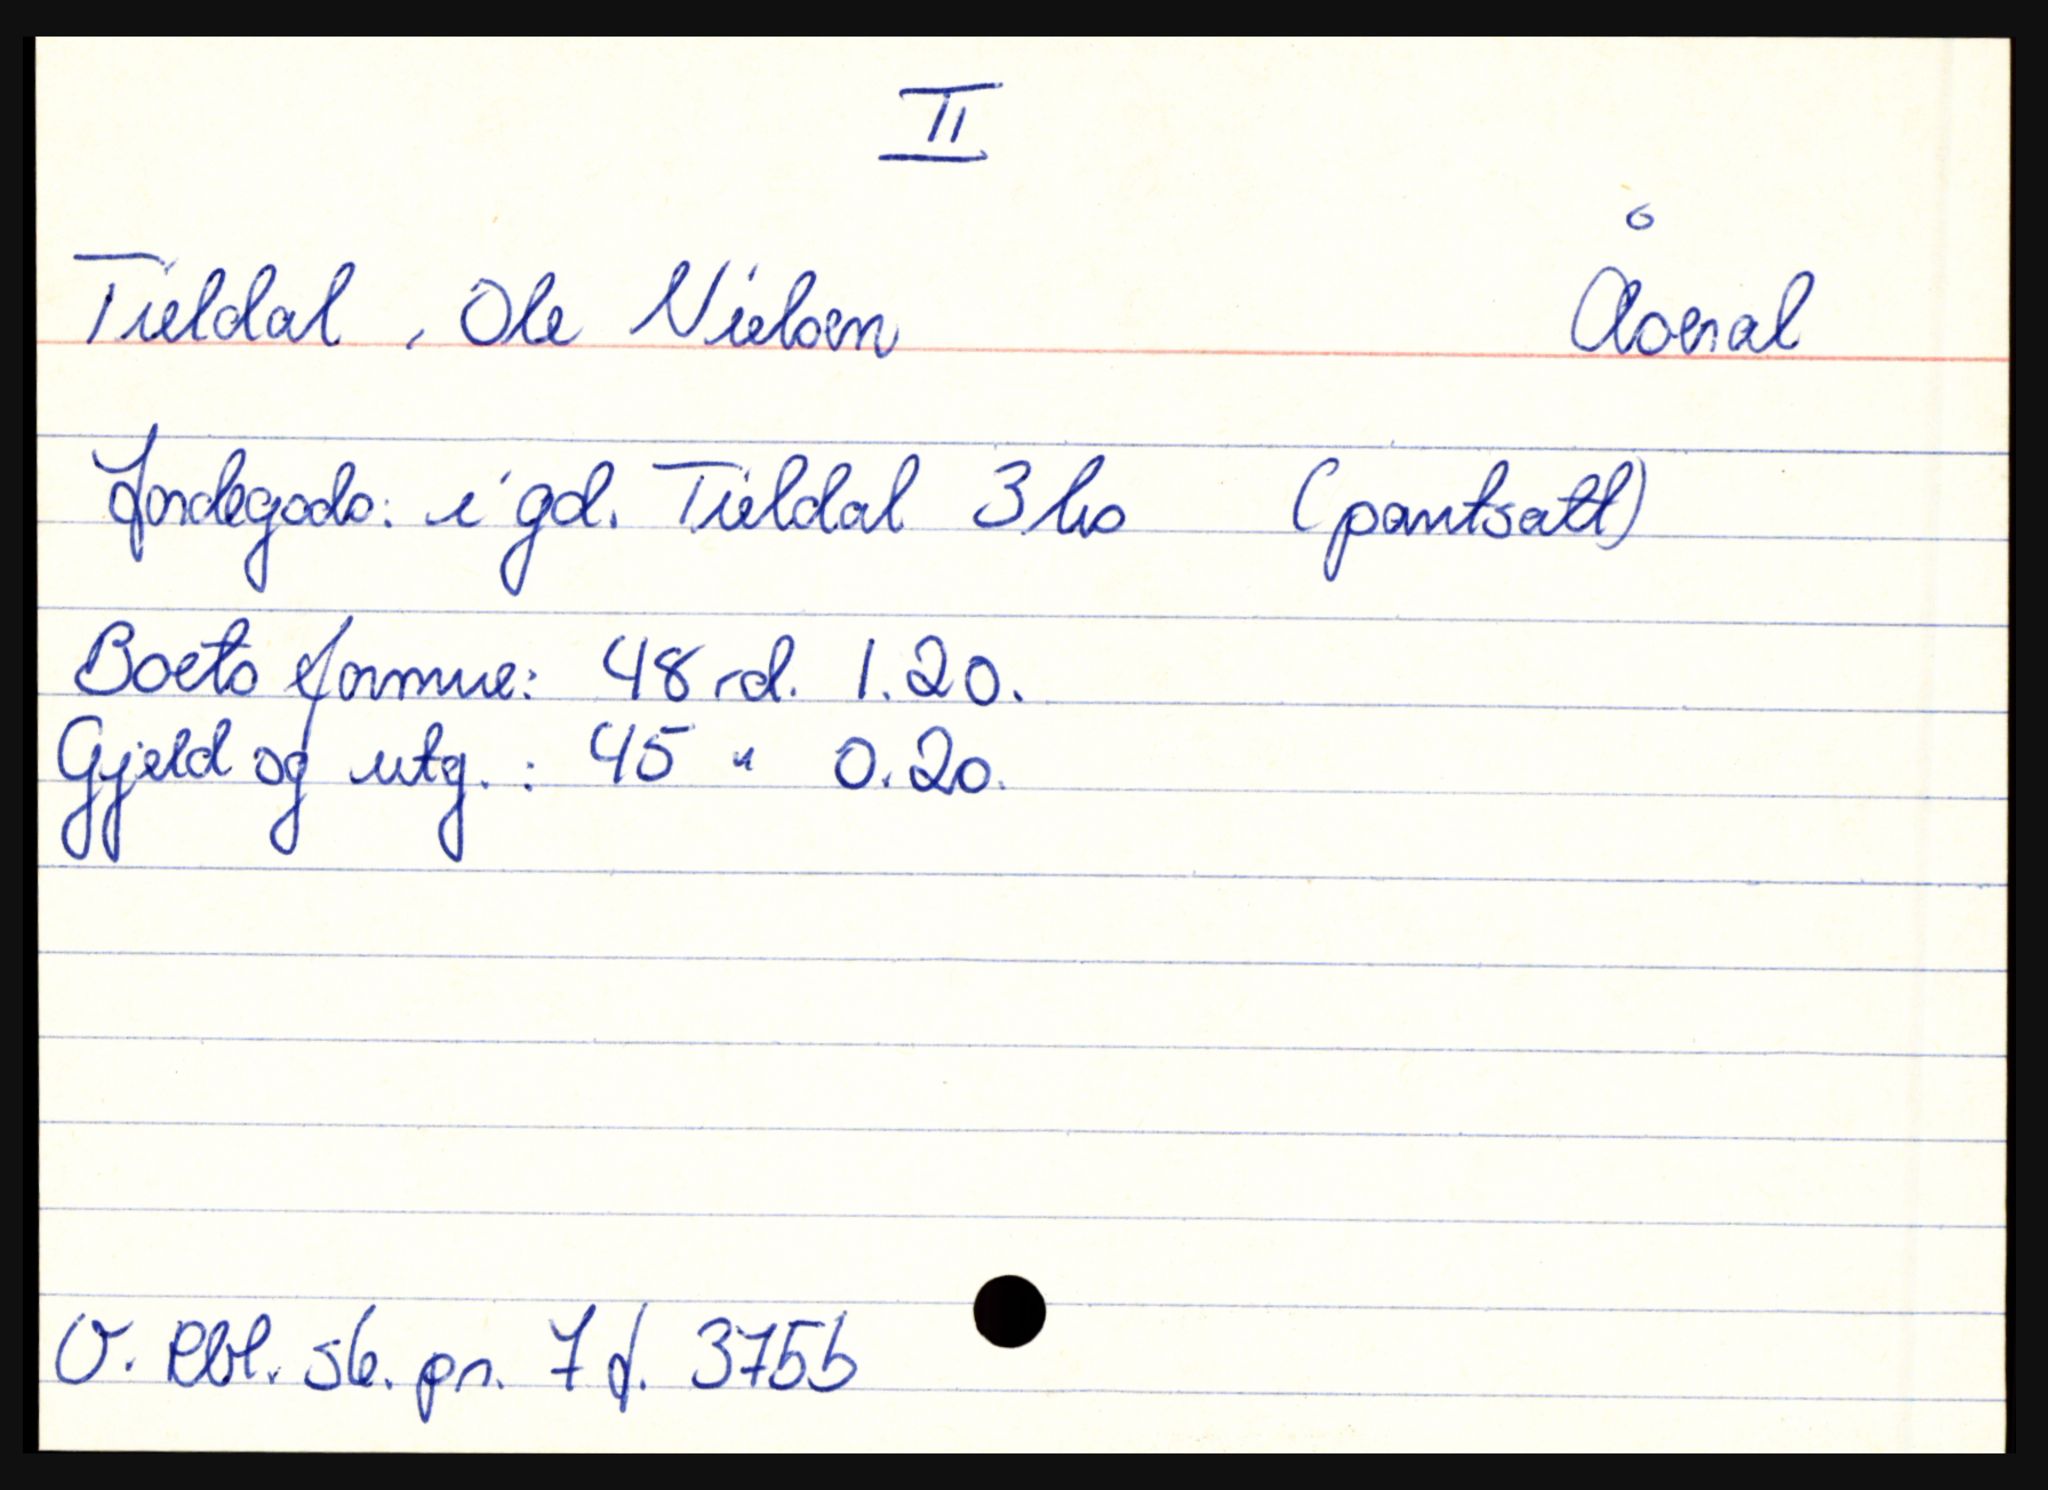 II
Tieldal, Ole Nielsen Åseral
Jordegods: i gd. Tieldal 3 hs (pantsatt)
Boets formue: 48 rd. 1.20.
Gjeld og utg.: 45 " 0.20.
V. Rbl. sk. pr. 7 f. 375b